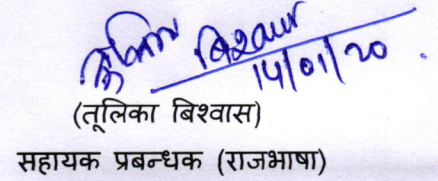 तूलिका बिश्वास
14/01/20
(तूलिका बिश्वास)
सहायक प्रबन्धक (राजभाषा)